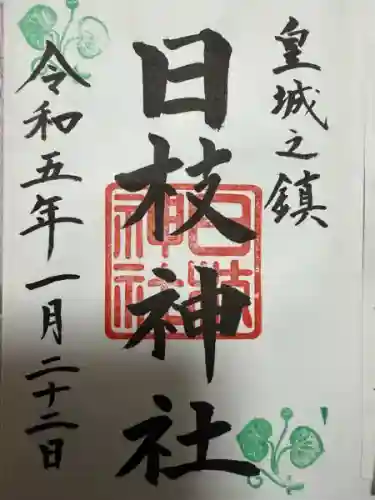 皇城之鎮
日枝神社
日枝神社
令和五年一月二十二日